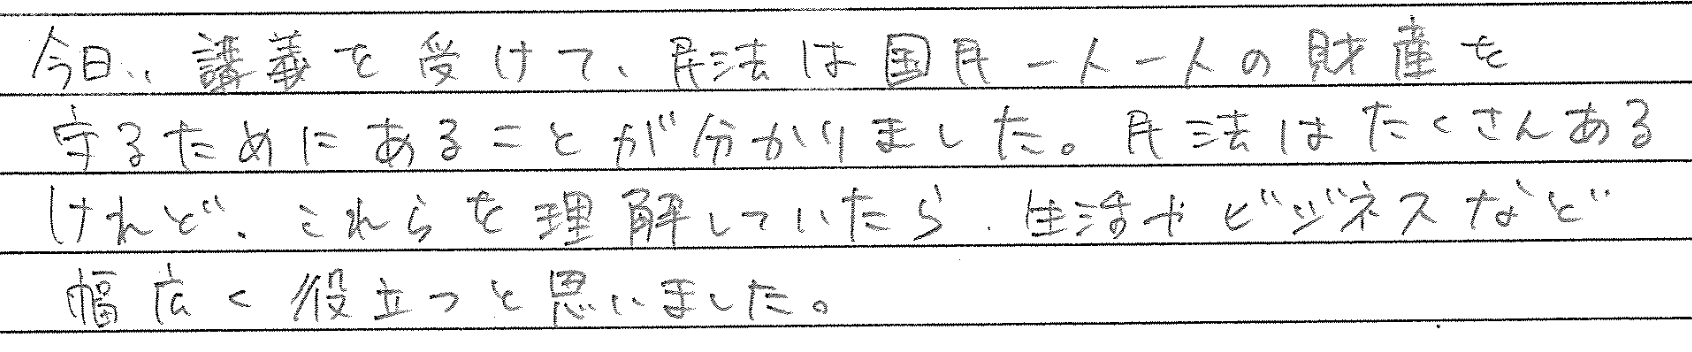 今日、講義を受けて、民法は国民一人一人の財産を
守るためにあることが分かりました。民法はたくさんある
けれど、これらを理解していたら、生活やビジネスなど
幅広く役立つと思いました。